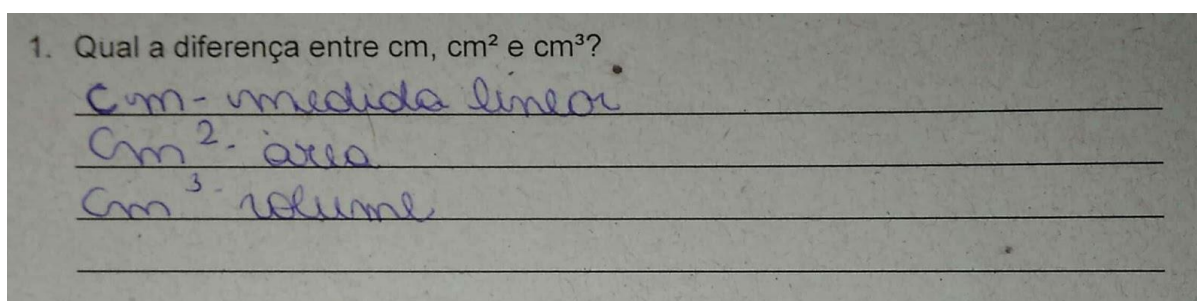 1. Qual a diferença entre cm, cm² e cm³?
cm - medida linear
cm² - área
cm³ - volume